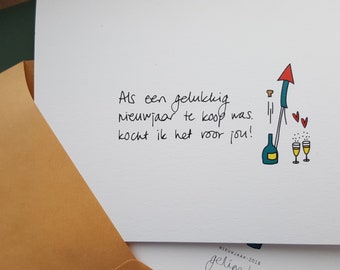 Als een gelukkig
nieuwjaar te koop was.
kocht ik het voor jou!